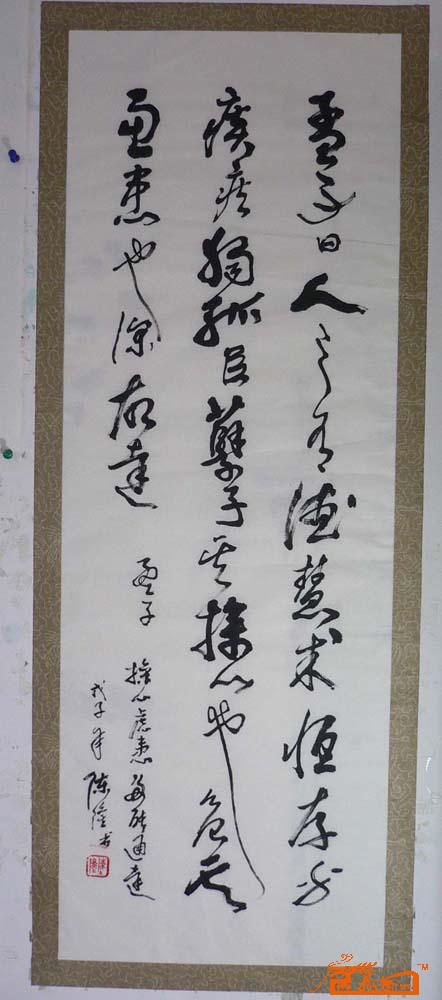 孟子曰人之有德慧术恒存乎
疢疾獨孤臣孽子其操心也危其
慮患也深故達 孟子
操心慮患 每能通達
戊子年 陈 书